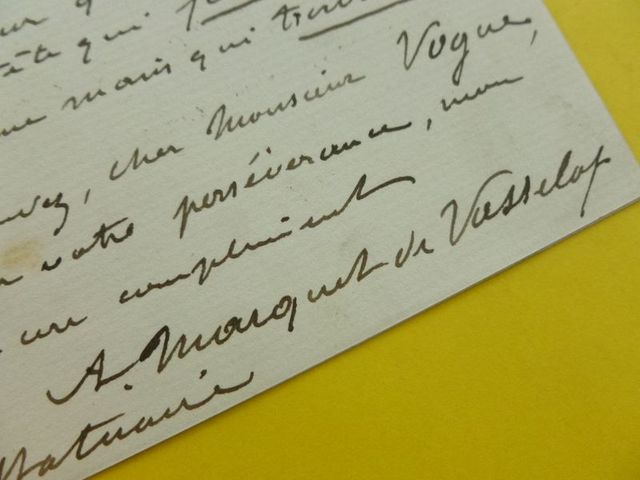 qui
tête qui
mains qui
cher Monsieur Vogue,
votre persévérance, mon
compliment
A. Marquet de Vasselot
Statuaire